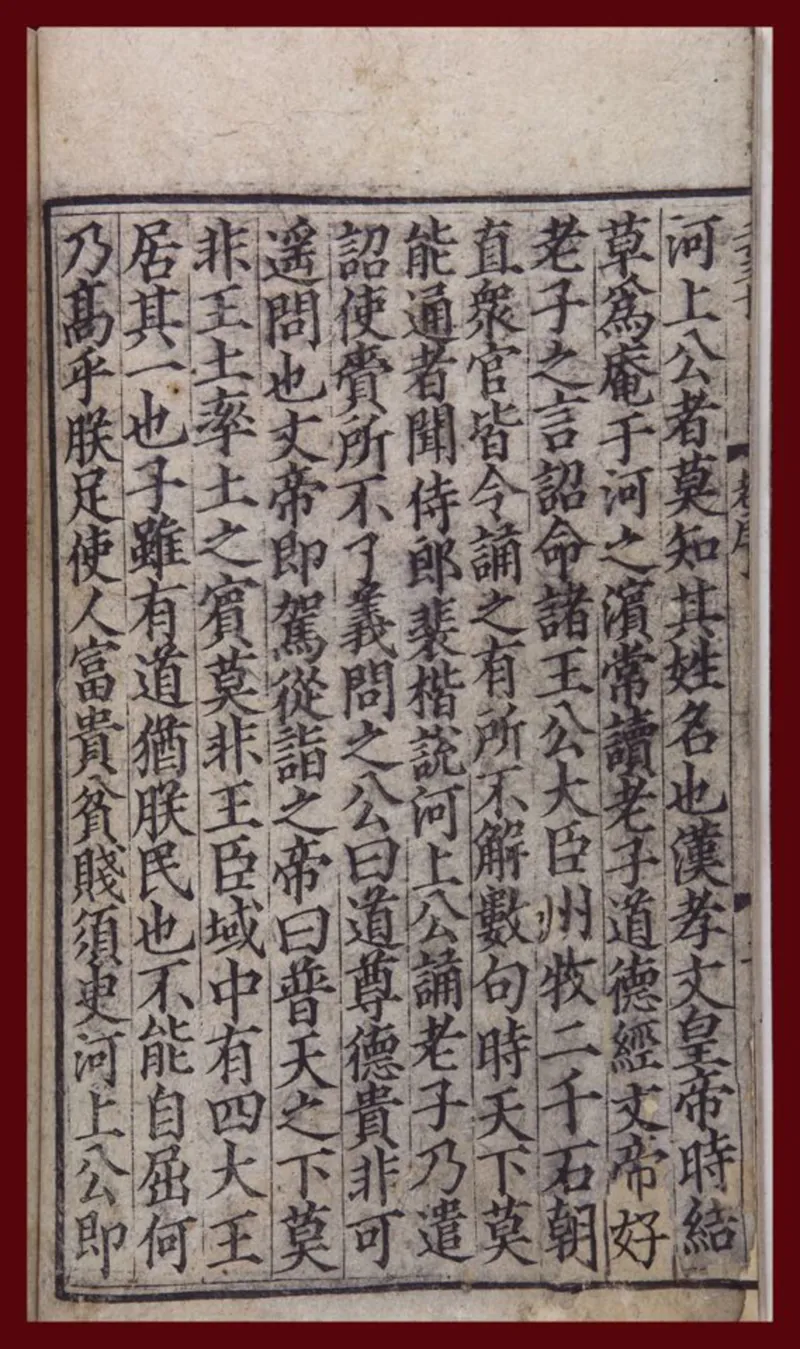 河上公者莫知其姓名也漢孝文皇帝時結
草爲庵于河之濱常讀老子道德經文帝好
老子之言詔命諸王公大臣州牧二千石朝
直衆官皆令誦之有所不解數句時天下莫
能通者聞侍郎裴楷説河上公誦老子乃遣
詔使賫所不了義問之公曰道尊德貴非可
遥問也文帝即駕從詣之帝曰普天之下莫
非王土率土之賓莫非王臣域中有四大王
居其一也子雖有道猶朕民也不能自屈何
乃髙乎朕足使人富貴貧賤須臾河上公即